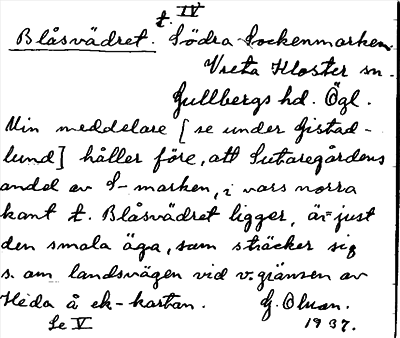 IV
Blåsvädret. t. Södra Sockenmarken
Vreta Kloster sn.
Gullbergs hd. Ögl.
Min meddelare [se under Gistad-
lund] håller före, att Sutaregårdens
andel av S-marken, i vars norra
kant t. Blåsvädret ligger, är just
den smala äga, som sträcker sig
s. om landsvägen vid v. gränsen av
Heda å ek-kartan. G. Olson.
Se V 1937.